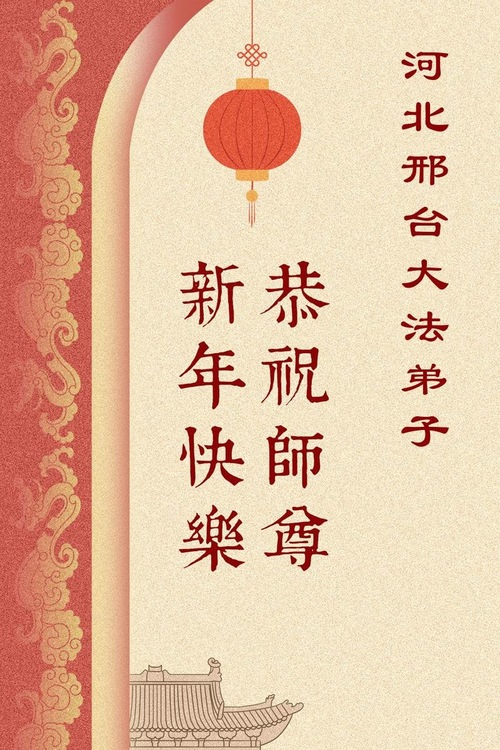 河北邢台大法弟子
恭祝師尊
新年快樂